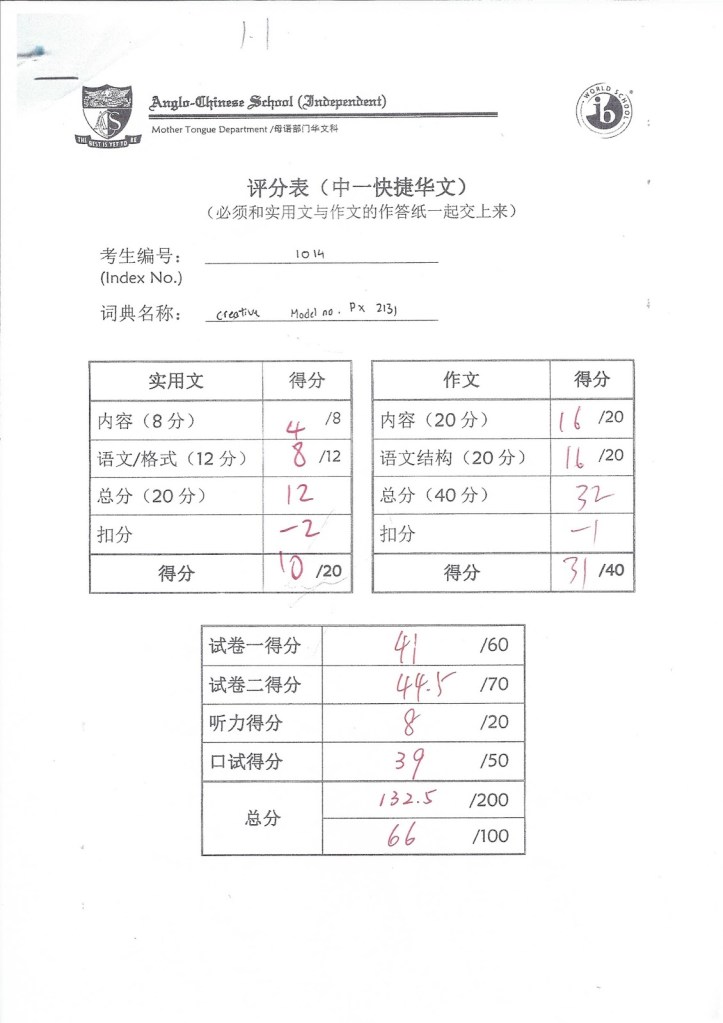 1.1
Anglo-Chinese School (Independent)
Mother Tongue Department /母语部门华文科
THE BEST IS YET TO BE
ACS
WORLD SCHOOL
ib
评分表（中一快捷华文）
（必须和实用文与作文的作答纸一起交上来）
考生编号： 1014
(Index No.)
词典名称： creative Model no. PX 2131
实用文 得分
内容（8 分） 4 /8
语文/格式（12 分） 8 /12
总分（20 分） 12
扣分 -2
得分 10 /20
作文 得分
内容（20 分） 16 /20
语文结构（20 分） 16 /20
总分（40 分） 32
扣分 -1
得分 31 /40
试卷一得分 41 /60
试卷二得分 44.5 /70
听力得分 8 /20
口试得分 39 /50
总分 132.5 /200
66 /100